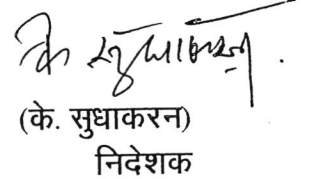 के सुधाकरन
(के. सुधाकरन)
निदेशक